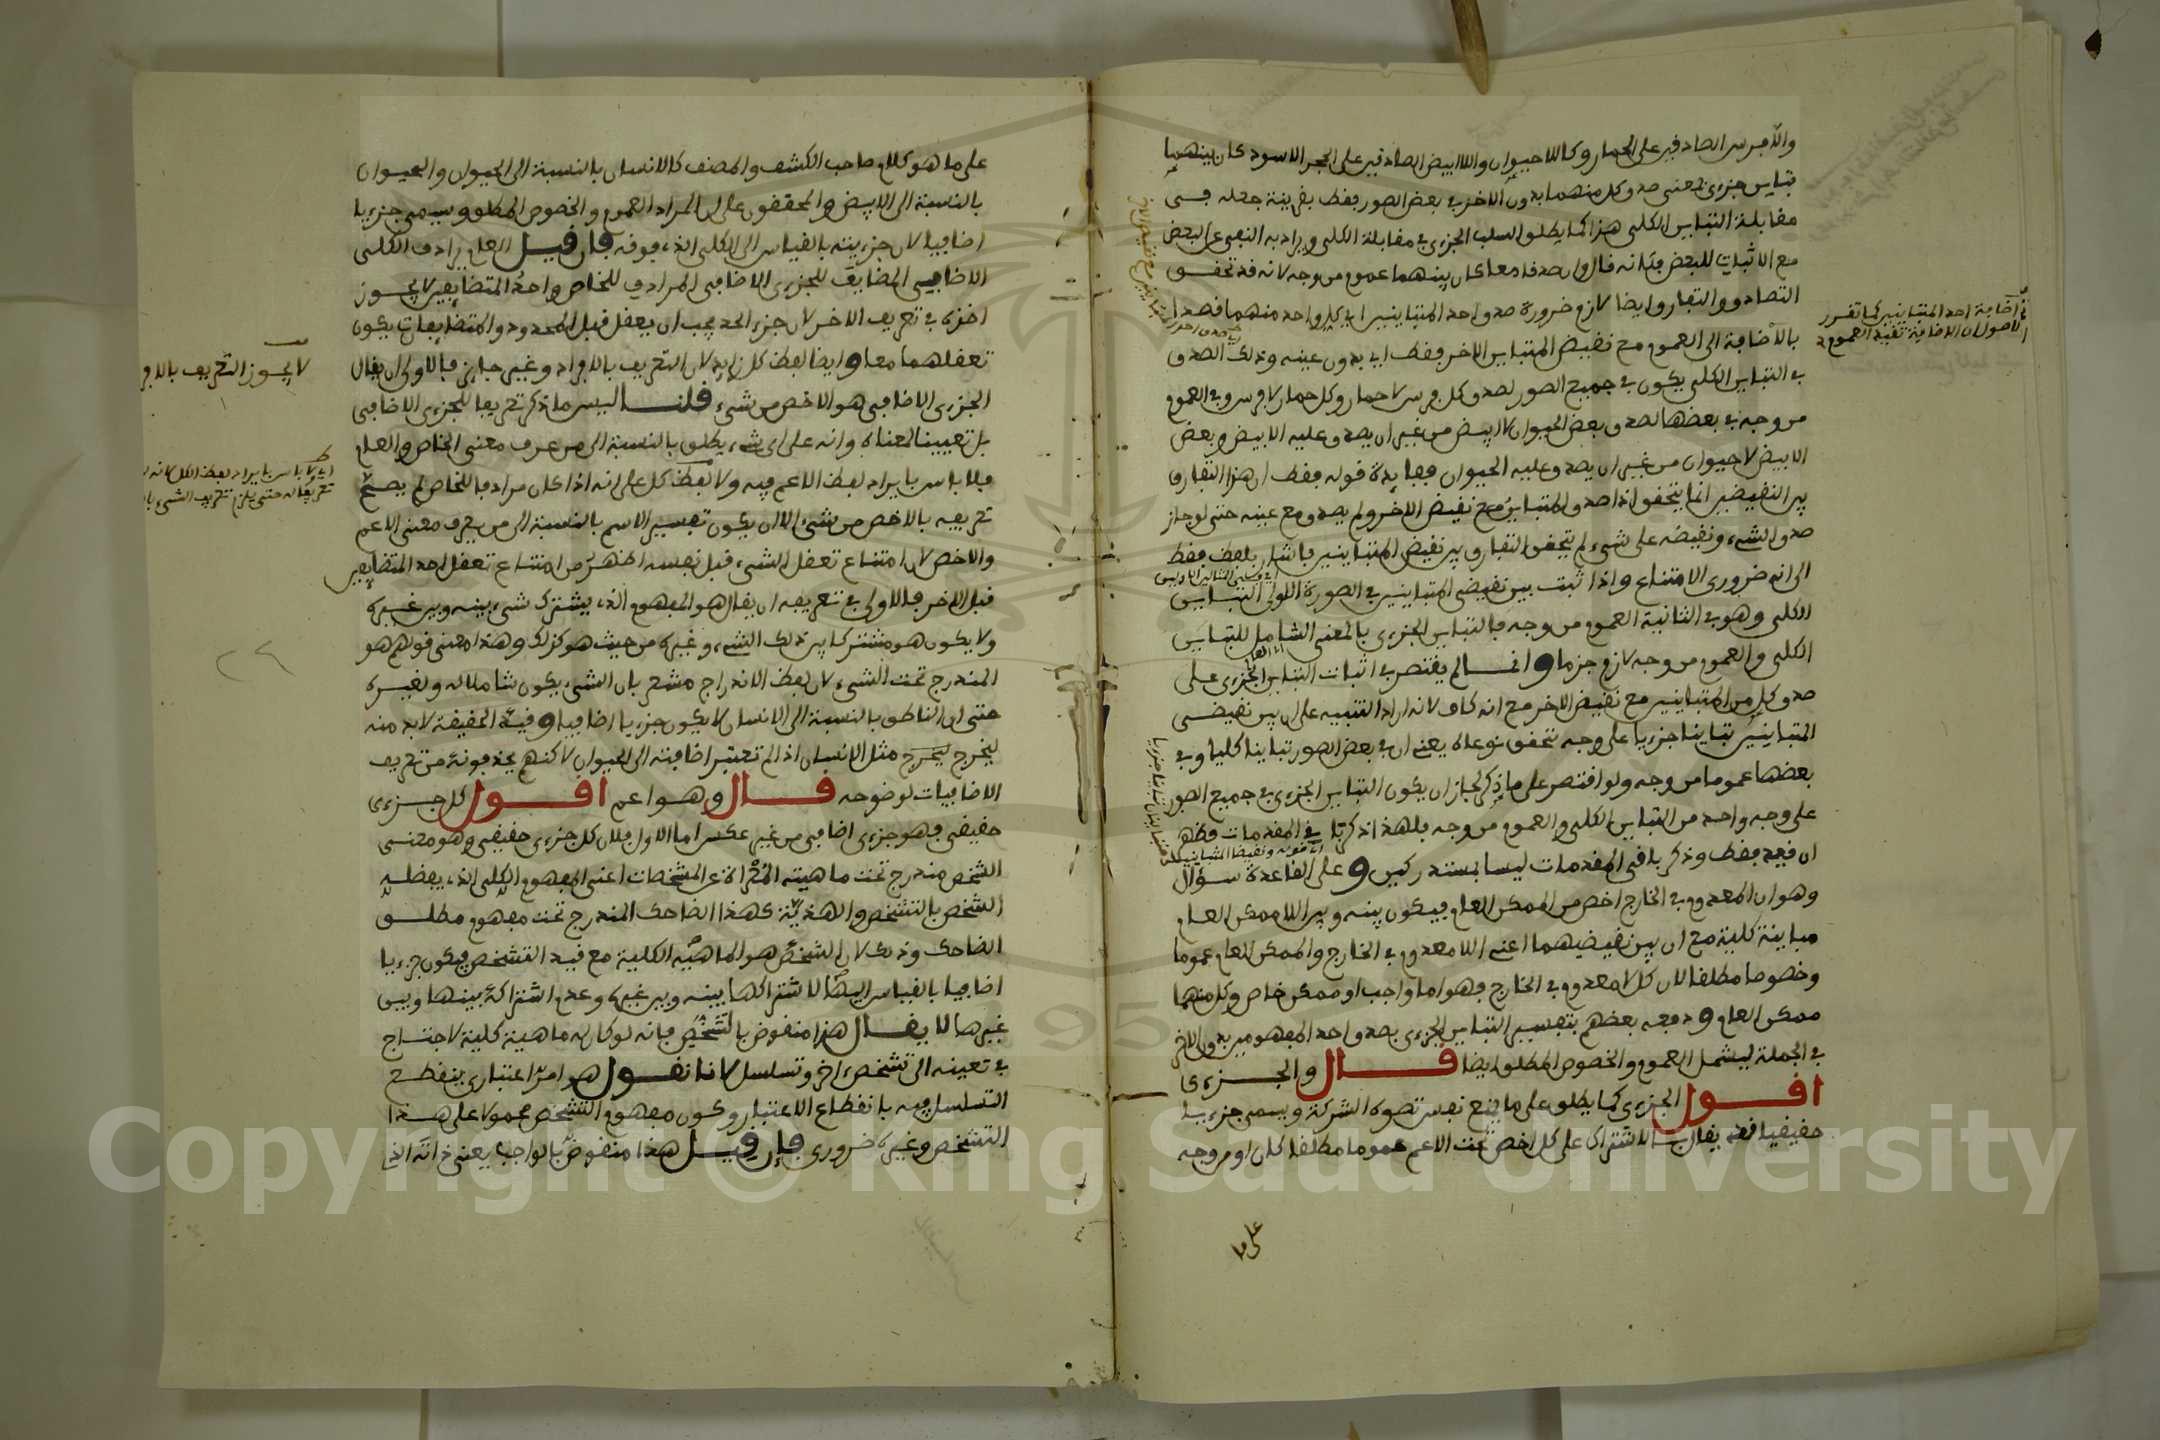 والافرس الصادقين على الحمار وكاللاحيوان واللاابيض الصادقين على الحجر الاسود كان بينهما
تباين جزءى بمعنى صدق كل منهما بدون الاخر في بعض الصور فقط بقرينة جعله في
مقابلة التباين الكلى هذا كما يطلق السلب الجزءى في مقابلة الكلى ويراد به النفى عن البعض
مع الاثبات للبعض فكانه قال وان صدقا معا كان بينهما عموم من وجه لانه قد تحقق
التصادق والتفارق ايضا لازم ضرورة صدق احد المتباينين اى كل واحد منهما قصدا
بالاضافة الى العموم مع نقيض المتباين الاخر فقط اى بدون عينه وذلك الصدق
في التباين الكلى يكون في جميع الصور لصدق كل فرس لا حمار وكل حمار لا فرس وفي العموم
من وجه في بعضها لصدق بعض الحيوان لا ابيض من غير ان يصدق عليه الابيض وبعض
الابيض لا حيوان من غير ان يصدق عليه الحيوان ففايدة قوله فقط ان هذا التفارق
بين النقيضين انما يتحقق اذا صدق المتباين مع نقيض الاخر ولم يصدق مع عينه حتى لو جاز
صدق الشىء ونقيضه على شىء لم يتحقق التفارق بين نقيض المتباينين فاشار بلفظ فقط
الى انه ضرورى الامتناع واذا ثبت بين نقيضى المتباينين في الصورة الاولى التباين
الكلى وهو في الثانية العموم من وجه فالتباين الجزءى بالمعنى الشامل للتباين
الكلى والعموم من وجه لازم جزما وانما لم يقتصر في اثبات التباين الجزءى على
صدق كل من المتباينين مع نقيض الاخر مع انه كاف لانه اراد التنبيه على ان بين نقيضى
المتباينين تباينا جزءيا على وجه تحقق نوعاه يعنى ان في بعض الصور تباينا كليا وفي
بعضها عموما من وجه ولو اقتصر على ما ذكر لجاز ان يكون التباين الجزءى في جميع الصور
على وجه واحد من التباين الكلى والعموم من وجه فلهذا ذكرنا في المقدمات فظهر
ان قيد فقط وذكر باقى المقدمات ليسا بمستدركين وعلى القاعدة سؤال
وهو ان المعدوم في الخارج اخص من الممكن العام فيكون بينه وبين اللاممكن العام
مباينة كلية مع ان بين نقيضيهما اعنى اللامعدوم في الخارج والممكن العام عموما
وخصوصا مطلقا لان كل لامعدوم في الخارج فهو اما واجب او ممكن خاص وكل منهما
ممكن العام ودفعه بعضهم بتفسير التباين الجزءى بصدق احد المفهومين بدون الاخر
في الجملة ليشمل العموم والخصوص المطلق ايضا قال والجزءى
اقول الجزءى كما يطلق على ما يمنع نفس تصوره الشركة ويسمى جزءيا
حقيقيا فقد يقال بالاشتراك على كل اخص تحت الاعم عموما مطلقا كان او من وجه
على ما
اى اضافة احد المتباينين كما تقرر
الاصول ان الاضافة تفيد العموم
على ما هو كلام صاحب الكشف والمصنف كالانسان بالنسبة الى الحيوان والحيوان
بالنسبة الى الابيض والمحققون على ان المراد العموم والخصوص المطلق ويسمى جزءيا
اضافيا لان جزءيته بالقياس الى الكلى الذى فوقه فان قيل العام يرادف الكلى
الاضافى المضايف للجزءى الاضافى المرادف للخاص واحد المتضايفين لا يجوز
اخذه في تعريف الاخر لان جزء الحد يجب ان يعقل قبل المحدود والمتضايفان يكون
تعقلهما معا وايضا لفظ كل زايد لان التعريف بالافراد وغير جايز فالاولى ان يقال
الجزءى الاضافى هو الاخص من شىء قلنا ليس ما ذكر تعريفا للجزءى الاضافى
بل تعيينا لمعناه وانه على اى شىء يطلق بالنسبة الى من عرف معنى الخاص والعام
فلا باس بايراد لفظ الاعم فيه ولا لفظ كل على انه اذا كان مرادفا للخاص لم يصح
تعريفه بالاخص من شىء الا ان يكون تفسير الاسم بالنسبة الى من يعرف معنى الاعم
والاخص لان امتناع تعقل الشىء قبل نفسه اظهر من امتناع تعقل احد المتضايفين
قبل الاخر فالاولى في تعريفه ان يقال هو المفهوم الذى يشترك شىء بينه وبين غيره
ولا يكون هو مشتركا بين ذلك الشىء وغيره من حيث هو كذلك وهذا معنى قولهم هو
المندرج تحت الشىء لان لفظ الاندراج مشعر بان الشىء يكون شاملا له ولغيره
حتى ان الناطق بالنسبة الى الانسان لا يكون جزءيا اضافيا وقيد الحقيقة لابد منه
ليخرج مثل الانسان اذا لم تعتبر اضافته الى الحيوان لاكنهم يحذفونه من تعريف
الاضافيات لوضوحه قال وهو اعم اقول كل جزءى
حقيقى فهو جزءى اضافى من غير عكس اما الاول فلان كل جزءى حقيقى وهو معنى
الشخص مندرج تحت ماهيته المعراة عن المشخصات اعنى المفهوم الكلى الذى يفضله
الشخص بالتشخص والهذية كهذا الضاحك المندرج تحت مفهوم مطلق
الضاحك وذلك لان الشخص هو الماهية الكلية مع قيد التشخص فيكون جزءيا
اضافيا بالقياس اليها لاشتراكها بينه وبين غيره وعدم اشتراكه بينها وبين
غيرها لا يقال هذا منقوض بالتشخص فانه لو كان له ماهية كلية لاحتاج
في تعينه الى تشخص اخر وتسلسل لانا نقول هو امر اعتبارى ينقطع
التسلسل فيه بانقطاع الاعتبار وكون مفهوم التشخص محمولا على هذا
التشخص وغيره ضرورى فان قيل هذا منقوض بالواجب يعنى ذاته الذى
لا يجوز التعريف بالافر
اى لا باس بايراد لفظ الكل لانه
تعريفا له حتى يلزم تعريف الشىء با
Copyright © King Saud University